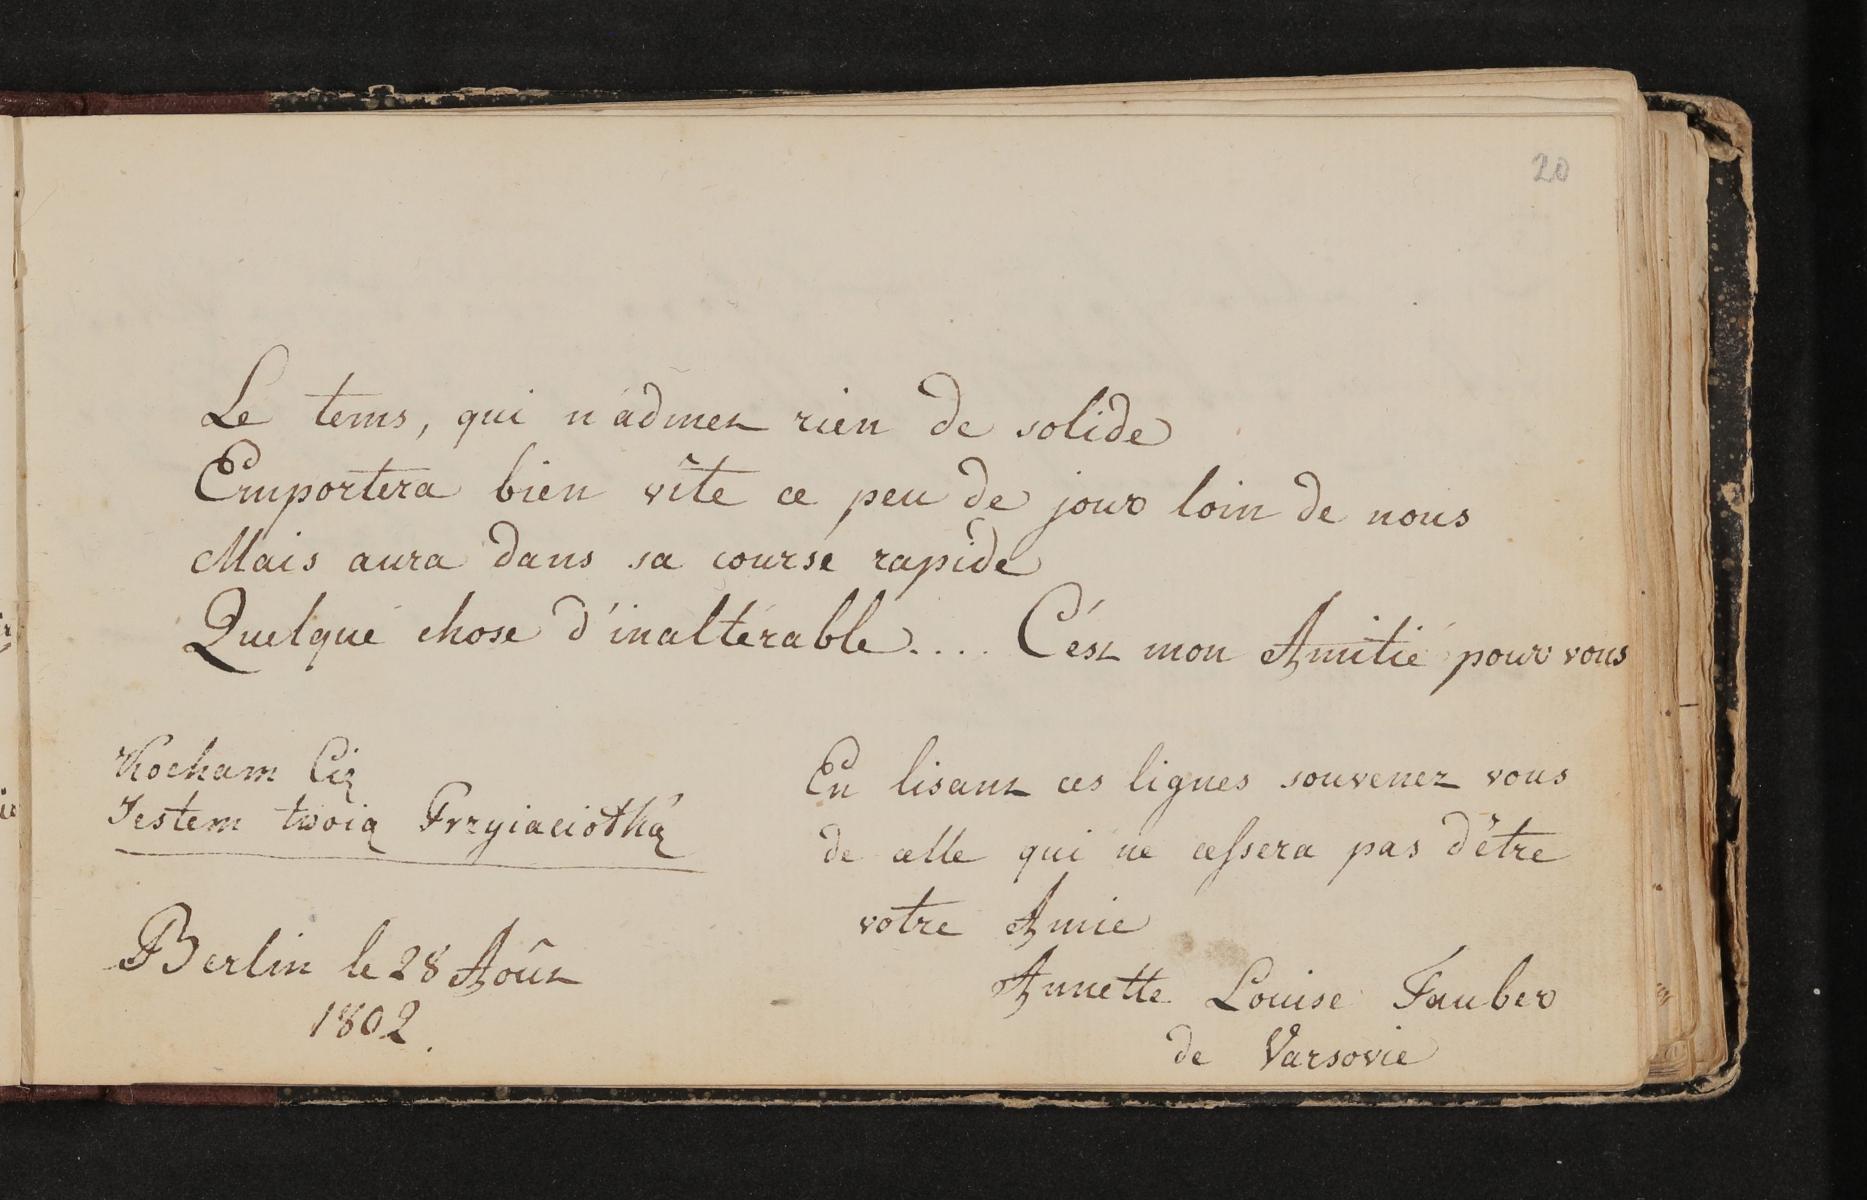 20
Le tems, qui n'admet rien de solide
Emportera bien vîte ce peu de jour loin de nous
Mais aura dans sa course rapide
Quelque chose d'inaltérable.... C'ést mon Amitié pour vous
Kocham Cię
Jestem twoią Przyiaciołką
En lisant ces lignes souvenez vous
de celle qui ne cessera pas d'être
votre Amie
Annette Louise Fauber
de Varsovie
Berlin le 28 Août
1802.